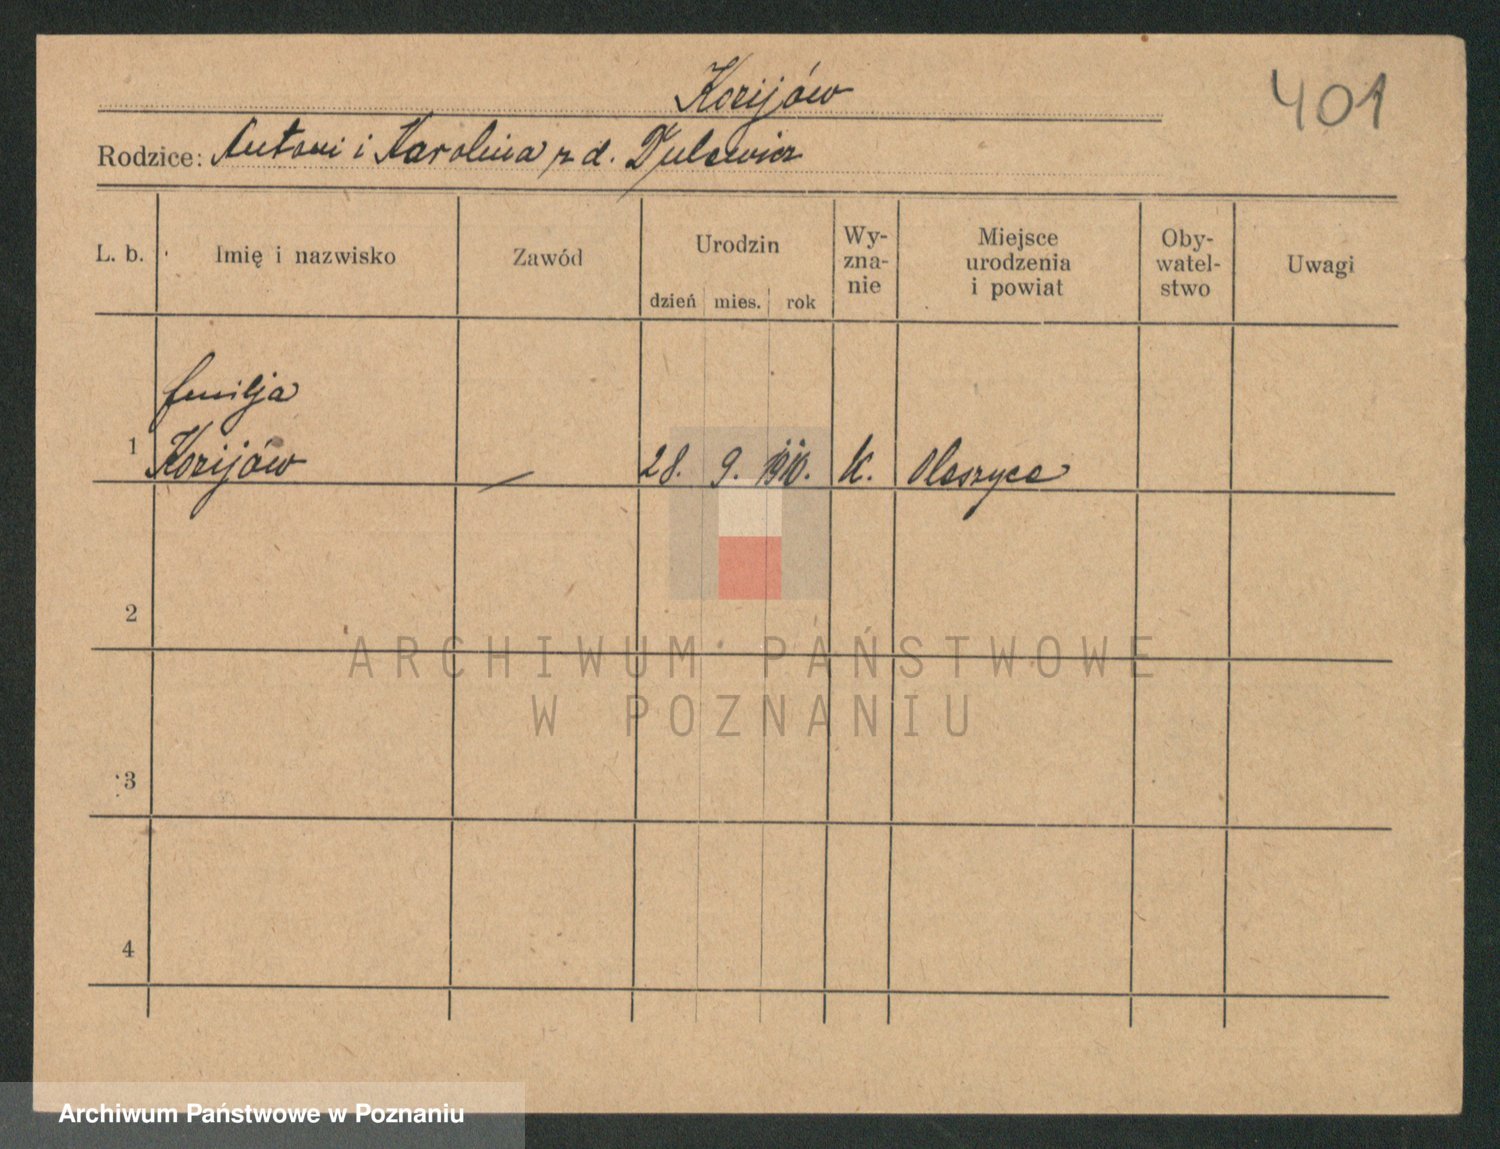 Korijów
401
Rodzice: Antoni i Karolina z d. Dulewicz
L. b. Imię i nazwisko Zawód Urodzin dzień mies. rok Wy-zna-nie Miejsce urodzenia i powiat Oby-watel-stwo Uwagi
familja
1 Korijów — 28. 9. K. Oleszyce
2
3
4
ARCHIWUM PAŃSTWOWE
W POZNANIU
Archiwum Państwowe w Poznaniu